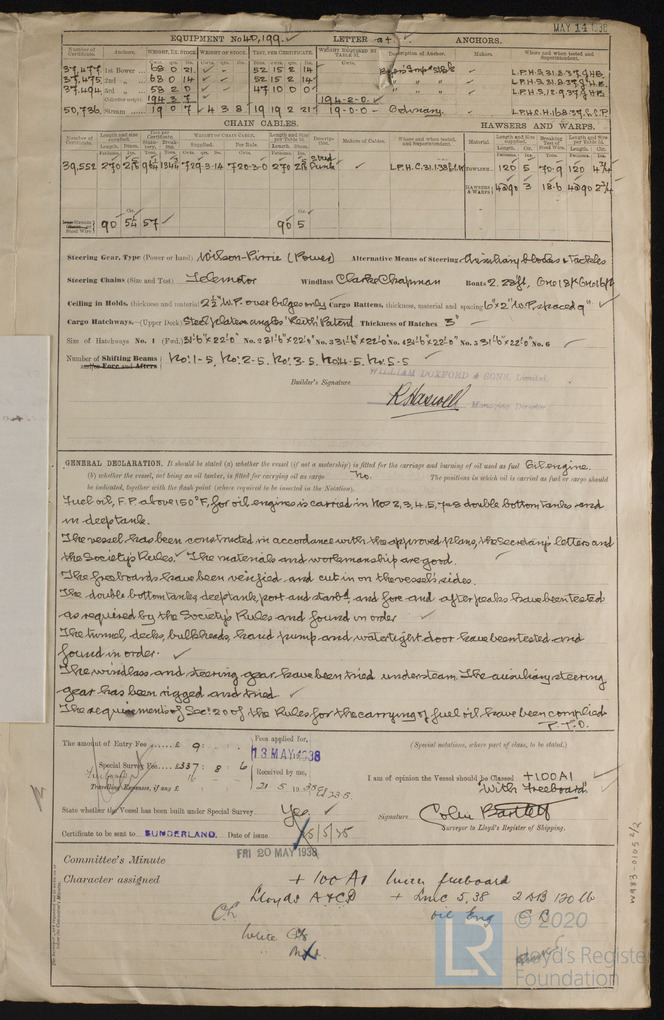 MAY 14 1938
EQUIPMENT No 40,199. LETTER a+ ANCHORS.
Number of Certificate. Anchors. WEIGHT, EX. STOCK. WEIGHT OF STOCK. TEST, PER CERTIFICATE. WEIGHT REQUIRED BY TABLE 31. Description of Anchor. Makers. Where and when tested, and Superintendent.
37,477 1st Bower 68 0 21 52 15 2 14 L.P.H.S. 31.8.37. J.H.B.
37,475 2nd " 68 0 14 52 15 2 14 L.P.H.S. 31.8.37. J.H.B.
37,494 3rd " 58 2 0 47 10 0 0 L.P.H.S. 12.9.37. J.H.B.
Collective weight 194 3 7 194-2-0
50,736 Stream 19 0 7 4 3 8 19 19 2 21 19-0-0 Ordinary.
CHAIN CABLES. HAWSERS AND WARPS.
Number of Certificate. Length and size supplied. Test per Certificate. WEIGHT OF CHAIN CABLE. Length and size per Table 31. Description. Makers of Cables. Where and when tested, and Superintendent. Material. Length and Size supplied. Breaking Test of Steel Wire. Length and Size per Table 31.
Length. Diam. Supplied. Per Rule. Length. Diam.
39,552 270 729-3-14 720-3-0 270 Stud Link TOWLINE 120 5 70.9 120 4¾
HAWSERS & WARPS 4@90 3 18.6 4@90 2¾
Steel Wire 90 5¼ 57 90 5
Steering Gear, Type (Power or hand) Wilson-Pirrie (Power) Alternative Means of Steering Auxiliary blocks & Tackles
Steering Chains (Size and Test) Telemotor Windlass Clarke Chapman Boats 2. 28 ft,
Ceiling in Holds, thickness and material 2½" W.P. over bilges only Cargo Battens, thickness, material and spacing 6" x 2" W.P. spaced 9"
Cargo Hatchways.—(Upper Deck) Steel plates & angles 'Keith' Patent Thickness of Hatches 3"
Size of Hatchways No. 1 (Fwd.) 31'-6" x 22'-0" No. 2 31'-6" x 22'-0" No. 3 31'-6" x 22'-0" No. 4 31'-6" x 22'-0" No. 5 31'-6" x 22'-0" No. 6
Number of Shifting Beams No: 1-5, No: 2-5, No: 3-5, No: 4-5, No: 5-5
and/or Fore and Afters
WILLIAM DOXFORD & SONS, Limited.
Builder's Signature R Haswell Managing Director
GENERAL DECLARATION. It should be stated (a) whether the vessel (if not a motorship) is fitted for the carriage and burning of oil used as fuel Oil engine.
(b) whether the vessel, not being an oil tanker, is fitted for carrying oil as cargo No. The positions in which oil is carried as fuel or cargo should
be indicated, together with the flash point (where required to be inserted in the Notation).
Fuel oil, F.P. above 150°F, for oil engines is carried in Nos 2, 3, 4, 5, 7 & 8 double bottom tanks and
in deep tank.
The vessel has been constructed in accordance with the approved plans, the Secretary's letters and
the Society's Rules. The materials and workmanship are good.
The freeboards have been verified and cut in on the vessel's sides.
The double bottom tanks, deep tank, port and starbd, and fore and after peaks have been tested
as required by the Society's Rules and found in order
The tunnel, decks, bulkheads, hand pump and watertight door have been tested and
found in order.
The windlass and steering gear have been tried under steam. The auxiliary steering
gear has been rigged and tried
The requirements of Sec: 20 of the Rules for the carrying of fuel oil have been complied
P.T.O.
The amount of Entry Fee £ 9 : Fees applied for, (Special notations, where part of class, to be stated.)
13 MAY 1938
Special Survey Fee £337 : 8 : 6 Received by me,
Travelling Expenses, if any £ 21.5.1938
I am of opinion the Vessel should be Classed +100A1
"With freeboard"
State whether the Vessel has been built under Special Survey Yes Signature Colin Bartlett
Surveyor to Lloyd's Register of Shipping.
Certificate to be sent to SUNDERLAND. Date of issue
FRI 20 MAY 1938
Committee's Minute
Character assigned + 100 A1 With freeboard
Lloyds A & CP + LMC 5,38 2 DB 120 lb
oil Eng
Write
W983-0105 2/2
LR © 2020
Lloyd's Register
Foundation